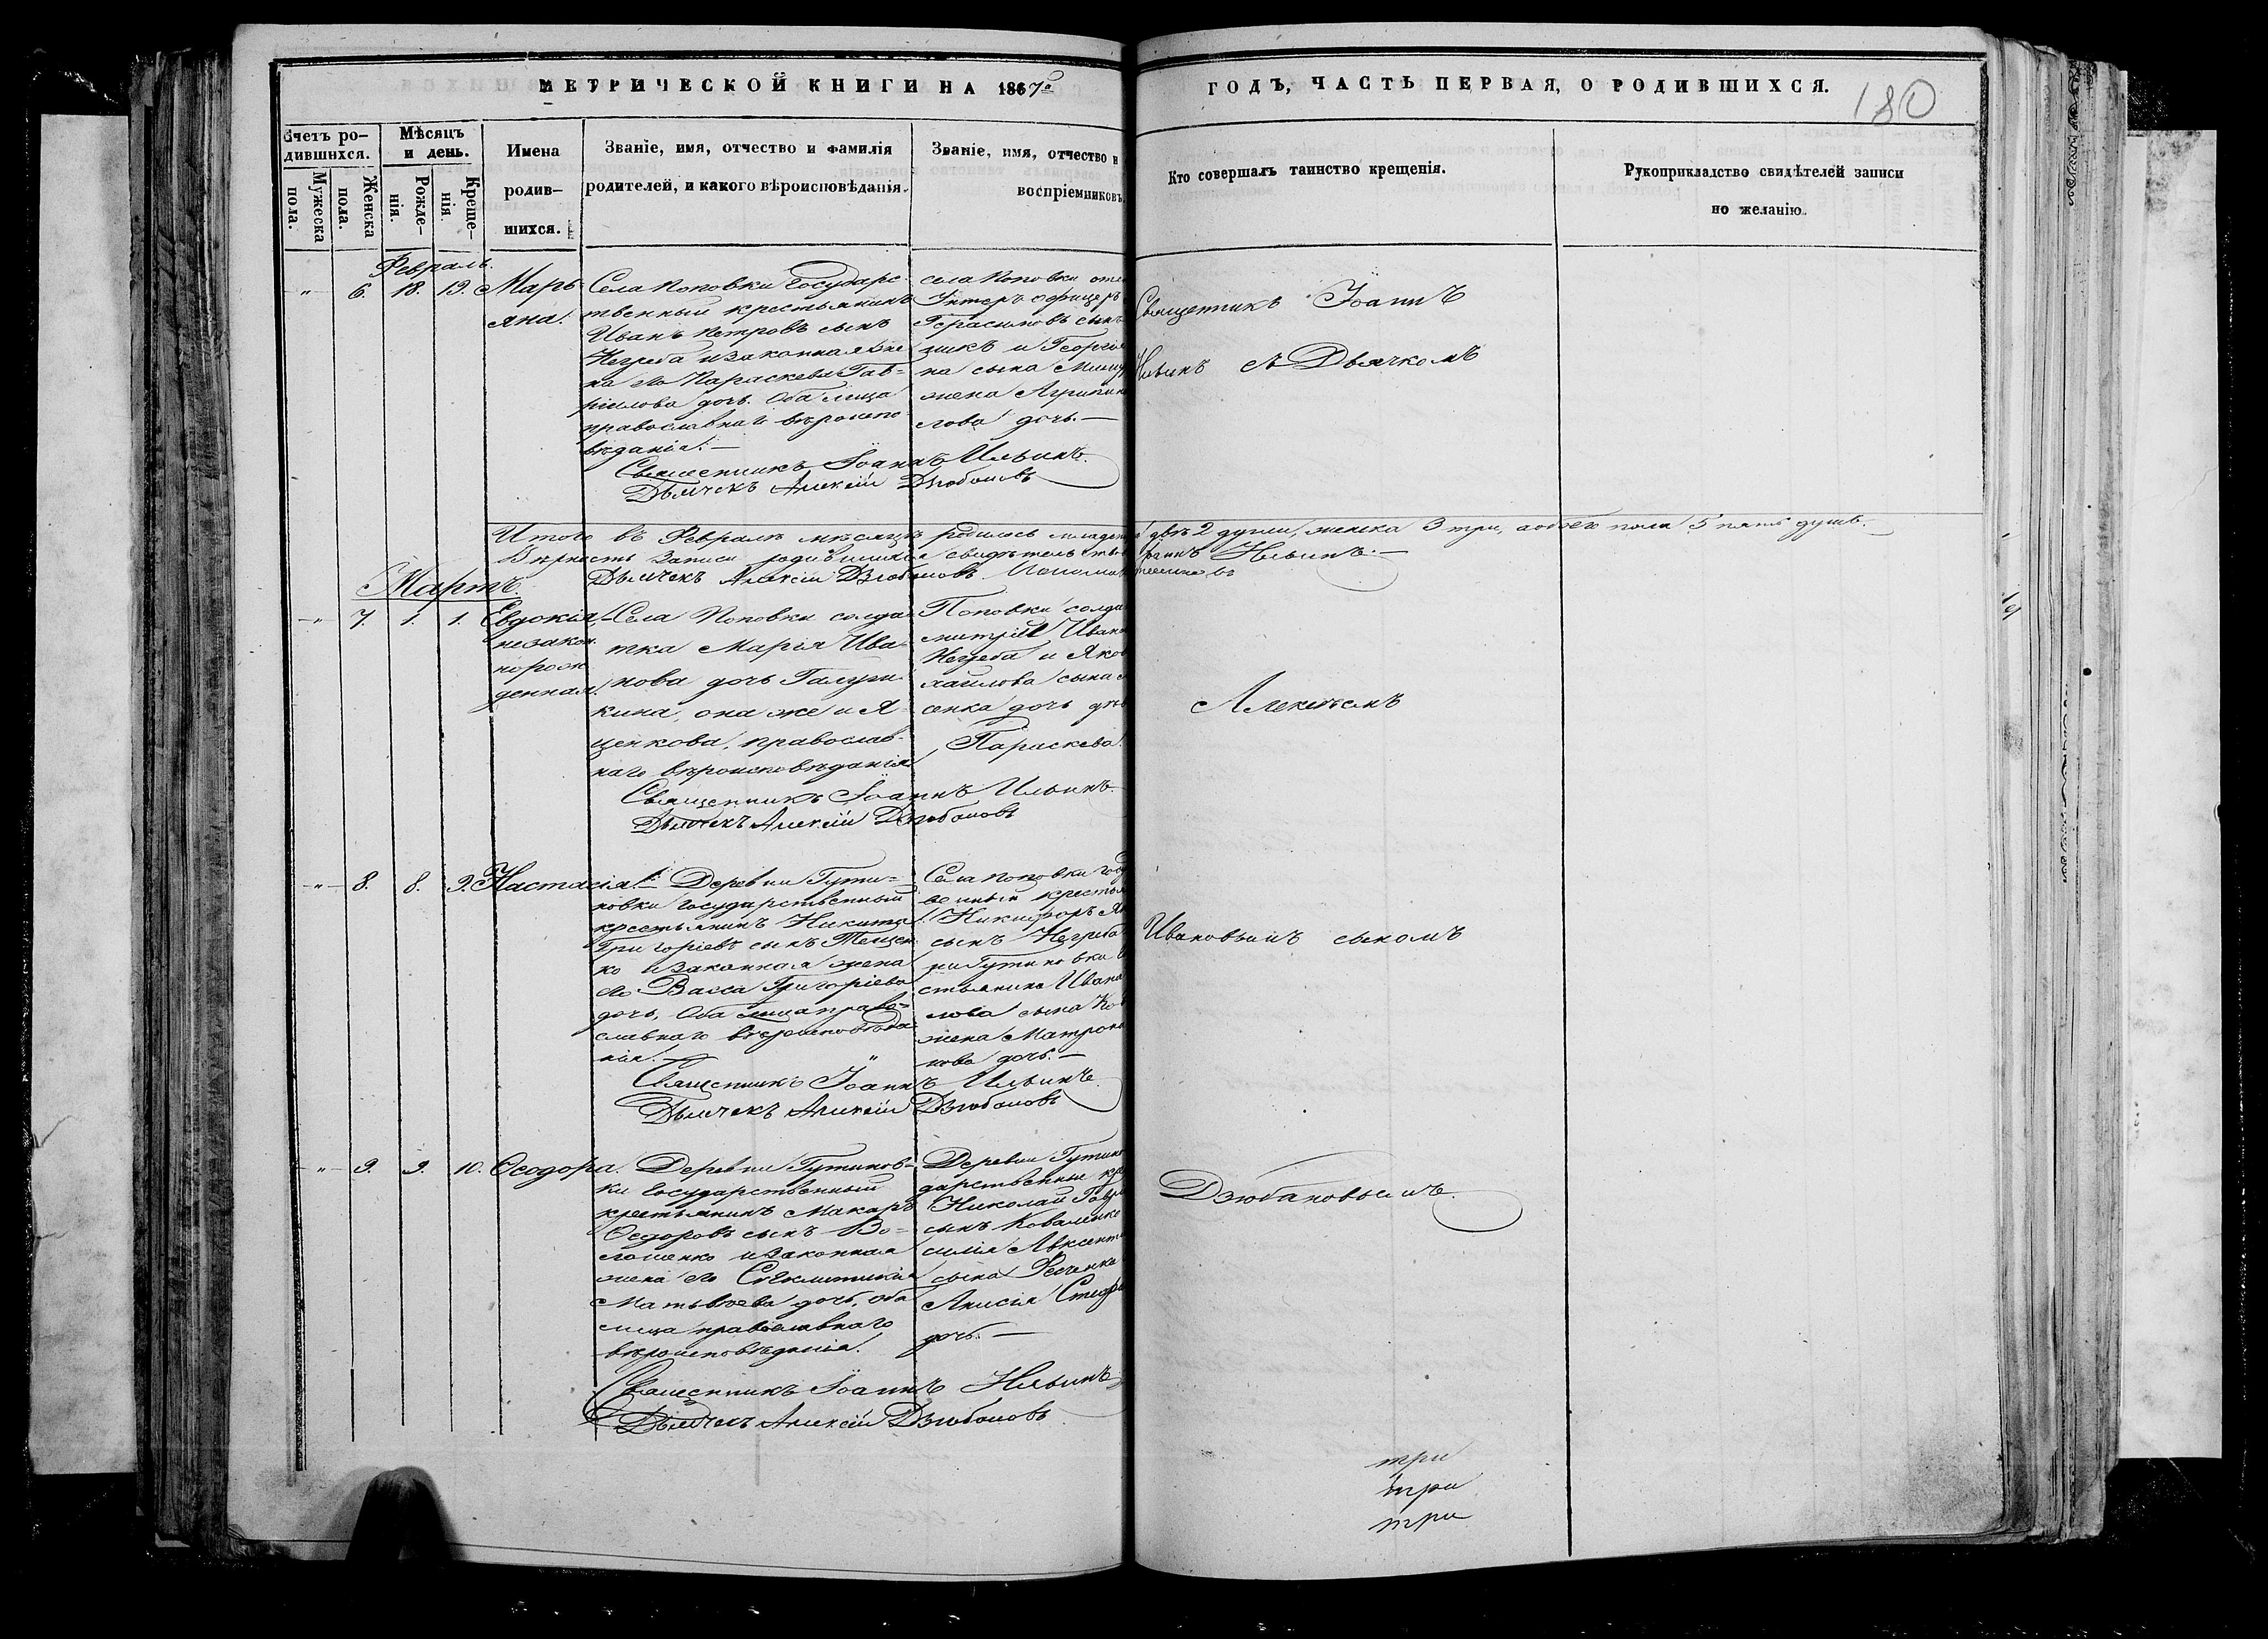 МЕТРИЧЕСКОЙ КНИГИ НА 1867го
ГОДЪ, ЧАСТЬ ПЕРВАЯ, О РОДИВШИХСЯ.
180
Счетъ ро-
дившихся.
Мужеска
пола.
Женска
пола.
Мѣсяцъ
и день.
Рожде-
нія.
Креще-
нія.
Имена
родив-
шихся.
Званіе, имя, отчество и фамилія
родителей, и какого вѣроисповѣданія.
Званіе, имя, отчество и
воспріемниковъ.
Кто совершалъ таинство крещенія.
Рукоприкладство свидѣтелей записи
по желанію.
Февраль.
" 6. 18. 19. Марь-
яна.
Села Поповки Государс-
твенный крестьянинъ
Иванъ Петровъ сынъ
Негреба и законная же
на его Параскева Гав-
ріилова дочь. Оба лица
православнаго вѣроиспо-
вѣданія.
села Поповки
Унтеръ офицеръ
Герасимовъ сынъ
и Георгія
на сына
жена Агрипин
лова дочь.
Священникъ Іоаннъ Ильинъ.
Дьячекъ Алексій Дзюбановъ
Итого въ Февралѣ мѣсяцѣ родилось младен двѣ 2 души, женска 3 три, а обоего пола 5 пять душъ.
Вѣрность записи родившихся свидѣтельств Іоаннъ Ильинъ.
Дьячекъ Алексій Дзюбановъ.
Мартъ.
" 7. 1. 1. Евдокія,
незакон
норож
денная.
Села Поповки солда-
тка Марія Ива-
нова дочь Галуш
кина, она же и Я
ценкова, православ-
наго вѣроисповѣданія
Поповки солда
митрій Иван
Негреба и Яков
хаилова сына
сенка дочь дѣв
Параскева.
Священникъ Іоаннъ Ильинъ.
Дьячекъ Алексій Дзюбановъ
" 8. 8. 9. Настасія.
Деревни Гути-
новки Государственный
крестьянинъ Никита
Григоріевъ сынъ
ко и законная жена
его Васса Григоріева
дочь, Оба лица право-
славнаго вѣроисповѣда-
нія.
Села Поповки Госу
венный крестья
Никифоръ Як
сынъ Негреба
ни Гутиновки
стьянина Ивана
лова сына Ко
жена Матрона
нова дочь.
Священникъ Іоаннъ Ильинъ.
Дьячекъ Алексій Дзюбановъ
" 9. 9. 10. Ѳеодора.
Деревни Гутинов-
ки Государственный
крестьянинъ Макаръ
Ѳедоровъ сынъ Во-
лошенко и законная
жена его Сѵнклитикія
Матвѣева дочь, оба
лица православнаго
вѣроисповѣданія.
Деревни Гутино
дарственные кре
Николай Гавр
сынъ Коваленко
силія Авксент
сына
Анисія Стеф
дочь.
Священникъ Іоаннъ Ильинъ
Дьячекъ Алексій Дзюбановъ
Священникъ Іоаннъ
Ильинъ съ Дьячкомъ
Алексѣемъ
Ивановымъ сыномъ
Дзюбановымъ.
три
три
три